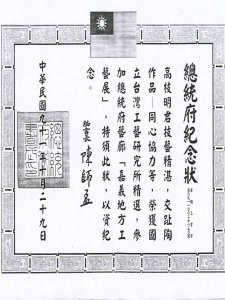 總統府紀念狀
高枝明君技藝精湛，交趾陶
作品—同心協力等，榮獲國
立台灣工藝研究所精選，參
加總統府藝廊「嘉義地方工
藝展」，特頒此狀，以資紀
念。
陳師孟
中華民國九十一年十月二十九日